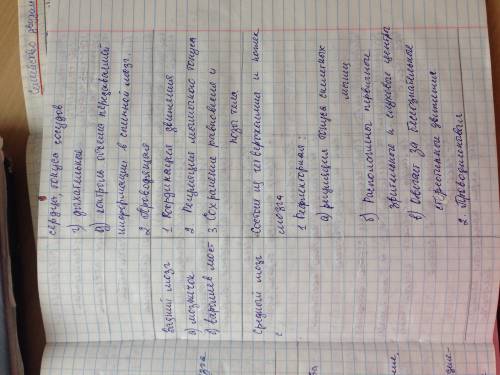 сердца, тонуса сосудов
г) дыхательной
контроль объема передаваемой
информации в спинной мозг.
2 Проводящая
Задний мозг
а) мозжечок
б) варолиев мост
1 Координация движения
2 Регуляция мышечного тонуса
3. Сохранение равновесия и
позы тела
Средний мозг
с
Состоит из четверохолмия и ножек
мозга
1 Рефлекторная:
а) регуляция тонуса скелетных
мышц
б) Расположены первичные
зрительные и слуховые центры
в) Отвечает за бессознательное
движения
2. Проводниковая